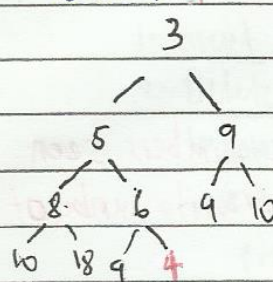 3
5 9
8 6 9 10
10 18 9 4